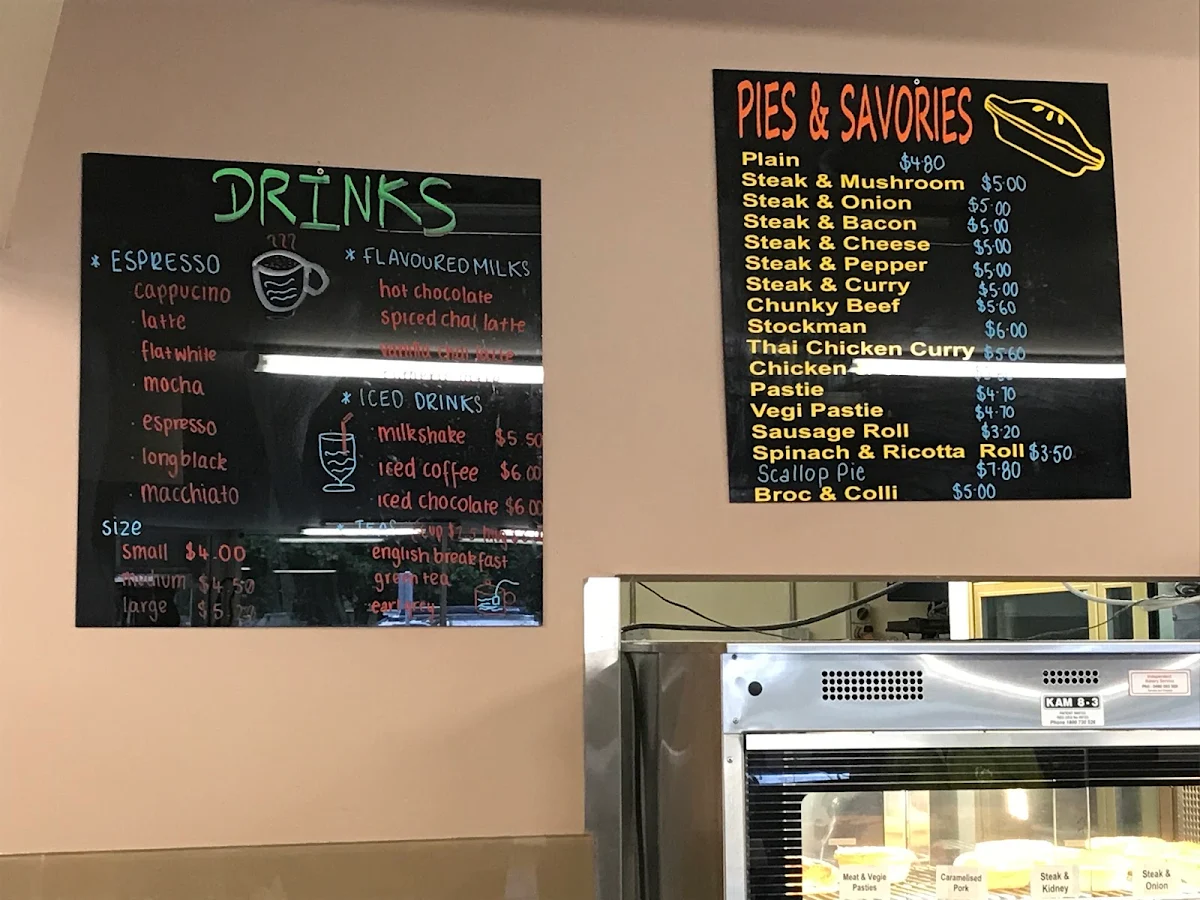 DRINKS
* ESPRESSO
cappucino
latte
flat white
mocha
espresso
long black
macchiato
size
small $4.00
medium $4.50
large
* FLAVOURED MILKS
hot chocolate
spiced chai latte
vanilla chai latte
* ICED DRINKS
milkshake $5.50
iced coffee $6.00
iced chocolate $6.00
* TEAS
english breakfast
green tea
earl grey
PIES & SAVORIES
Plain $4.80
Steak & Mushroom $5.00
Steak & Onion $5.00
Steak & Bacon $5.00
Steak & Cheese $5.00
Steak & Pepper $5.00
Steak & Curry $5.00
Chunky Beef $5.60
Stockman $6.00
Thai Chicken Curry $5.60
Chicken
Pastie $4.70
Vegi Pastie $4.70
Sausage Roll $3.20
Spinach & Ricotta Roll $3.50
Scallop Pie $7.80
Broc & Colli $5.00
KAM 8-3
Meat & Vegie
Pasties
Caramelised
Pork
Steak &
Kidney
Steak &
Onion